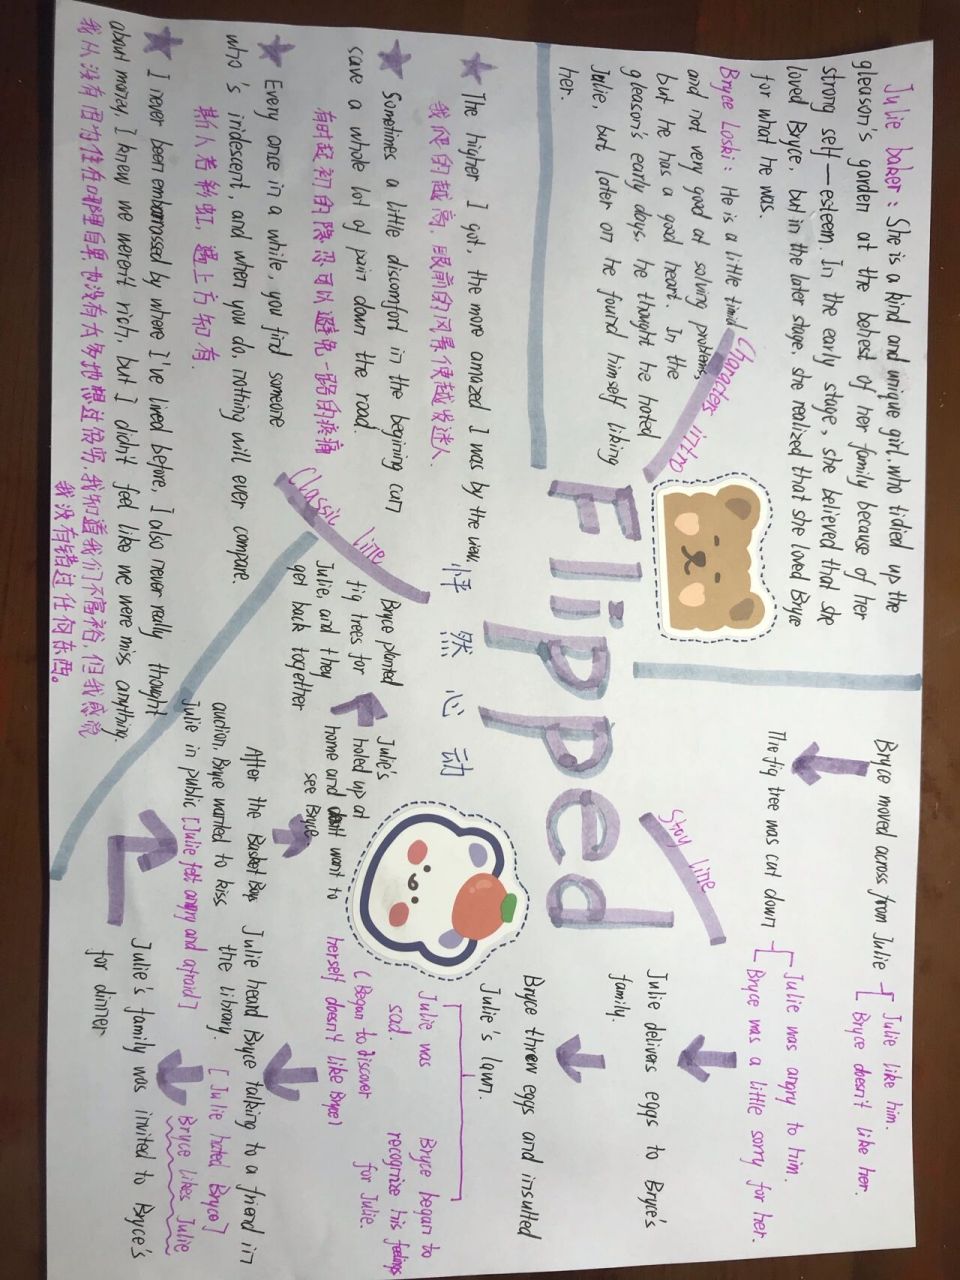 Flipped
怦然心动
Characters intro
Julie baker: She is a kind and unique girl, who tidied up the
gleason's garden at the behest of her family because of her
strong self-esteem. In the early stage, she believed that she
loved Bryce, but in the later stage, she realized that she loved Bryce
for what he was.
Bryce Loski: He is a little timid
and not very good at solving problems,
but he has a good heart. In the
gleason's early days, he thought he hated
Julie, but later on he found himself liking
her.
Classic line
The higher I got, the more amazed I was by the view.
我爬的越高，眼前的风景便越发迷人.
Sometimes a little discomfort in the begining can
save a whole lot of pain down the road.
有时起初的隐忍可以避免一路的疼痛
Every once in a while, you find someone
who's iridescent, and when you do, nothing will ever compare.
斯人若彩虹，遇上方知有.
I never been embarrassed by where I've lived before, I also never really thought
about money, I knew we weren't rich, but I didn't feel like we were miss anything.
我从没有因为住在哪里自卑也没有太多地想过很穷，我知道我们不富裕，但我感觉
我没有错过任何东西。
Stoy line
Bryce moved across from Julie
Julie like him.
Bryce doesn't like her.
The fig tree was cut down
Julie was angry to him.
Bryce was a little sorry for her.
Julie delivers eggs to Bryce's
family.
Bryce threw eggs and insulted
Julie's lawn.
Julie was
sad.
(Began to discover
herself doesn't like Bryce)
Bryce began to
recognize his feelings
for Julie.
Julie heard Bryce talking to a friend in
the library.
[Julie hated Bryce]
Bryce likes Julie
Julie's family was invited to Bryce's
for dinner
After the Basket Boys
audion, Bryce wanted to kiss
Julie in public [Julie felt angry and afraid]
Julie's
holed up at
home and want to
see Bryce
Bryce planted
fig trees for
Julie, and they
get back together